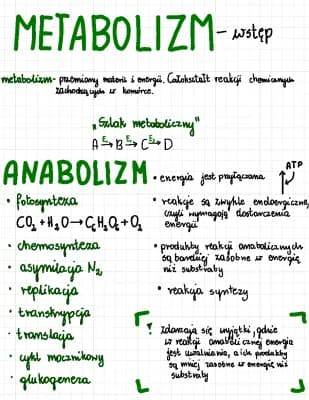 METABOLIZM - wstęp
metabolizm - przemiany materii i energii. Całokształt reakcji chemicznych
zachodzących w komórce.
„Szlak metaboliczny"
A E→ B E→ C E→ D
ANABOLIZM
• energia jest przyłączana
ATP
• fotosynteza
CO₂ + H₂O → C₆H₁₂O₆ + O₂
• chemosynteza
• asymilacja N₂
• replikacja
• transkrypcja
• translacja
• cykl mocznikowy
• glukogeneza
• reakcje są zwykle endoergiczne,
czyli wymagają dostarczenia
energii
• produkty reakcji anabolicznych
są bardziej zasobne w energię
niż substraty
• reakcja syntezy
! Zdarzają się wyjątki, gdzie
w reakcji anabolicznej energia
jest uwalniania, a ich produkty
są mniej zasobne w energię niż
substraty